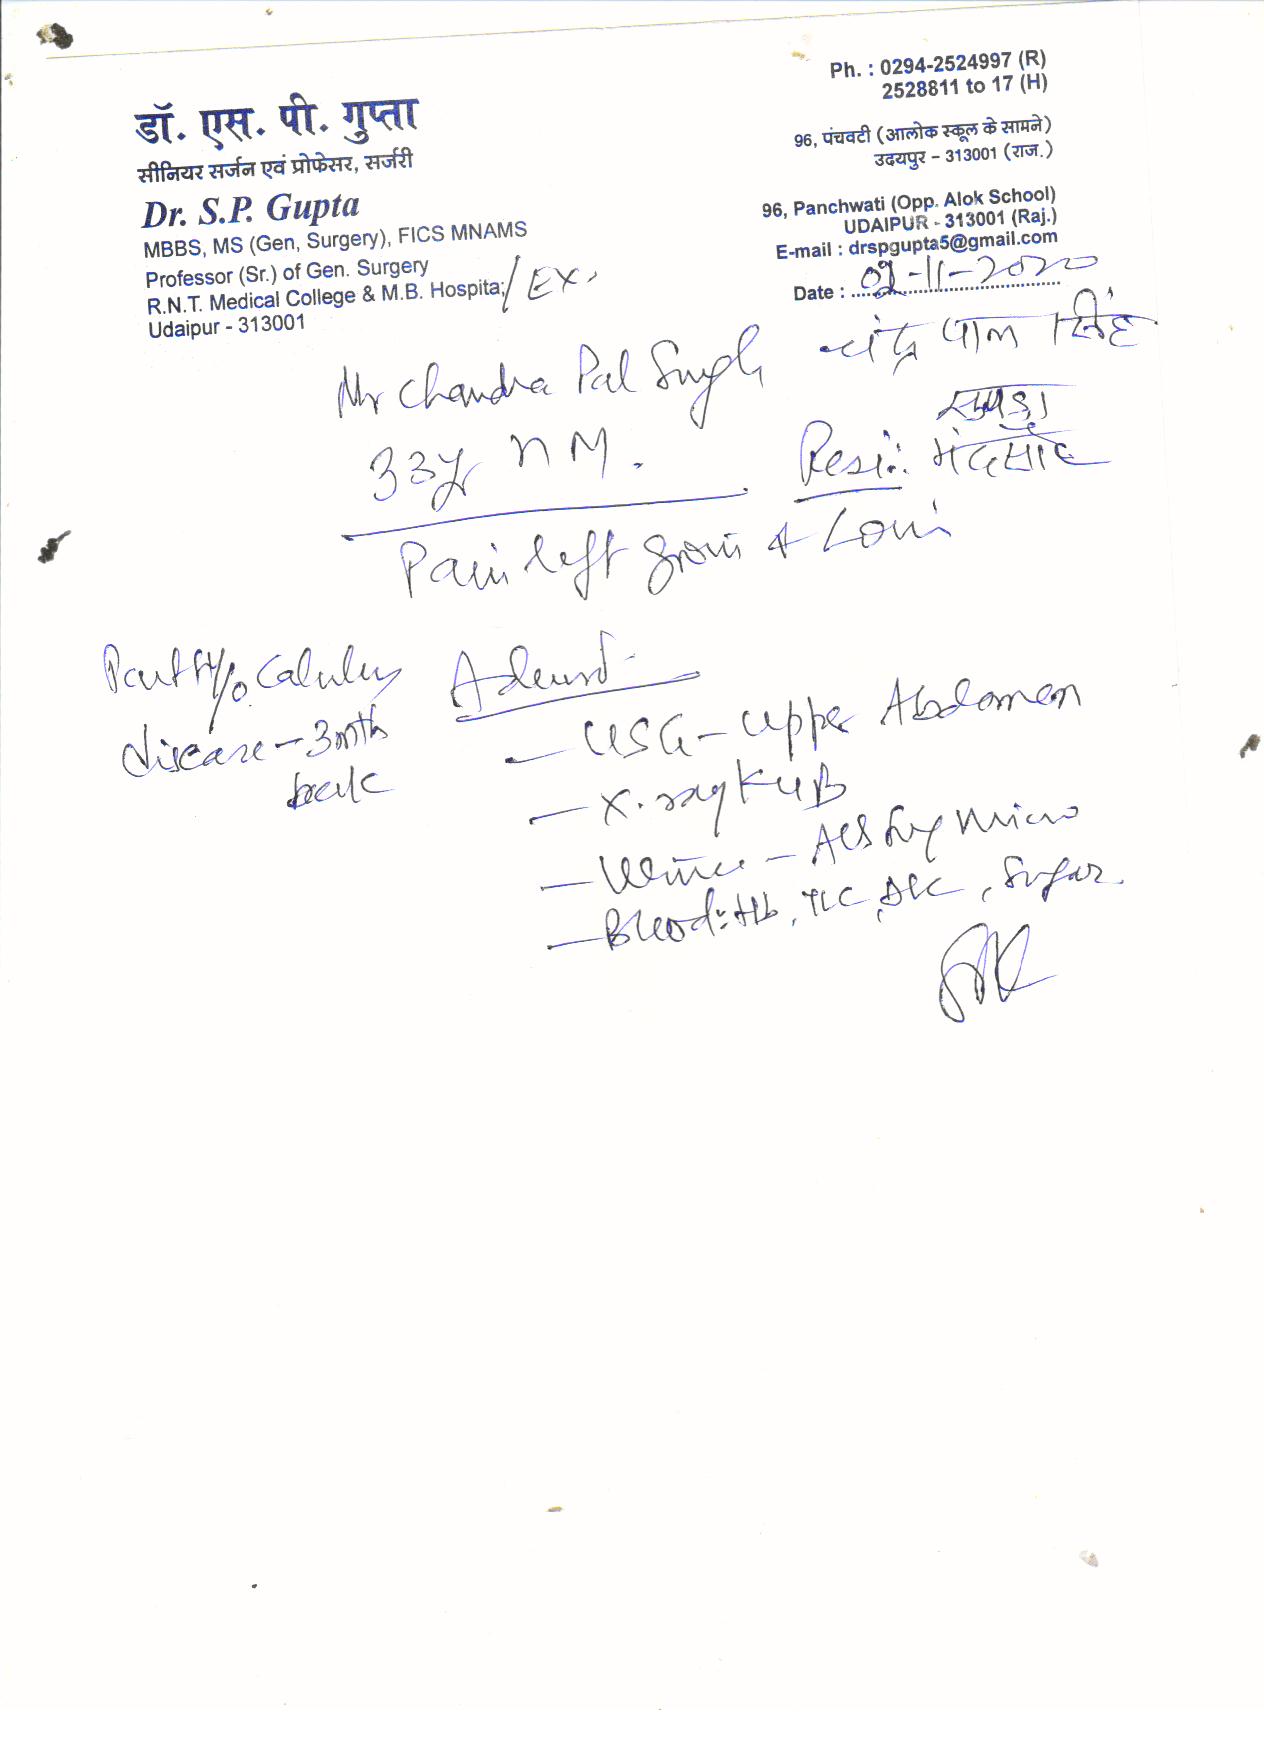 Ph. : 0294-2524997 (R)
2528811 to 17 (H)
डॉ. एस. पी. गुप्ता
सीनियर सर्जन एवं प्रोफेसर, सर्जरी
Dr. S.P. Gupta
MBBS, MS (Gen, Surgery), FICS MNAMS
Professor (Sr.) of Gen. Surgery
R.N.T. Medical College & M.B. Hospital /EX.
Udaipur - 313001
96, पंचवटी (आलोक स्कूल के सामने)
उदयपुर – 313001 (राज.)
96, Panchwati (Opp. Alok School)
UDAIPUR - 313001 (Raj.)
E-mail : drspgupta5@gmail.com
Date : 02-11-2020
Mr Chandra Pal Singh चंद्र पाल सिंह
33y M. Resi: मंदसौर
Pain left groin & Loin
Past H/o Calculus
disease - 3 mth
back
Advised
- USG - Upper Abdomen
- X-ray KUB
- Urine - Micro
- Blood: Hb, TLC, DLC, Sugar